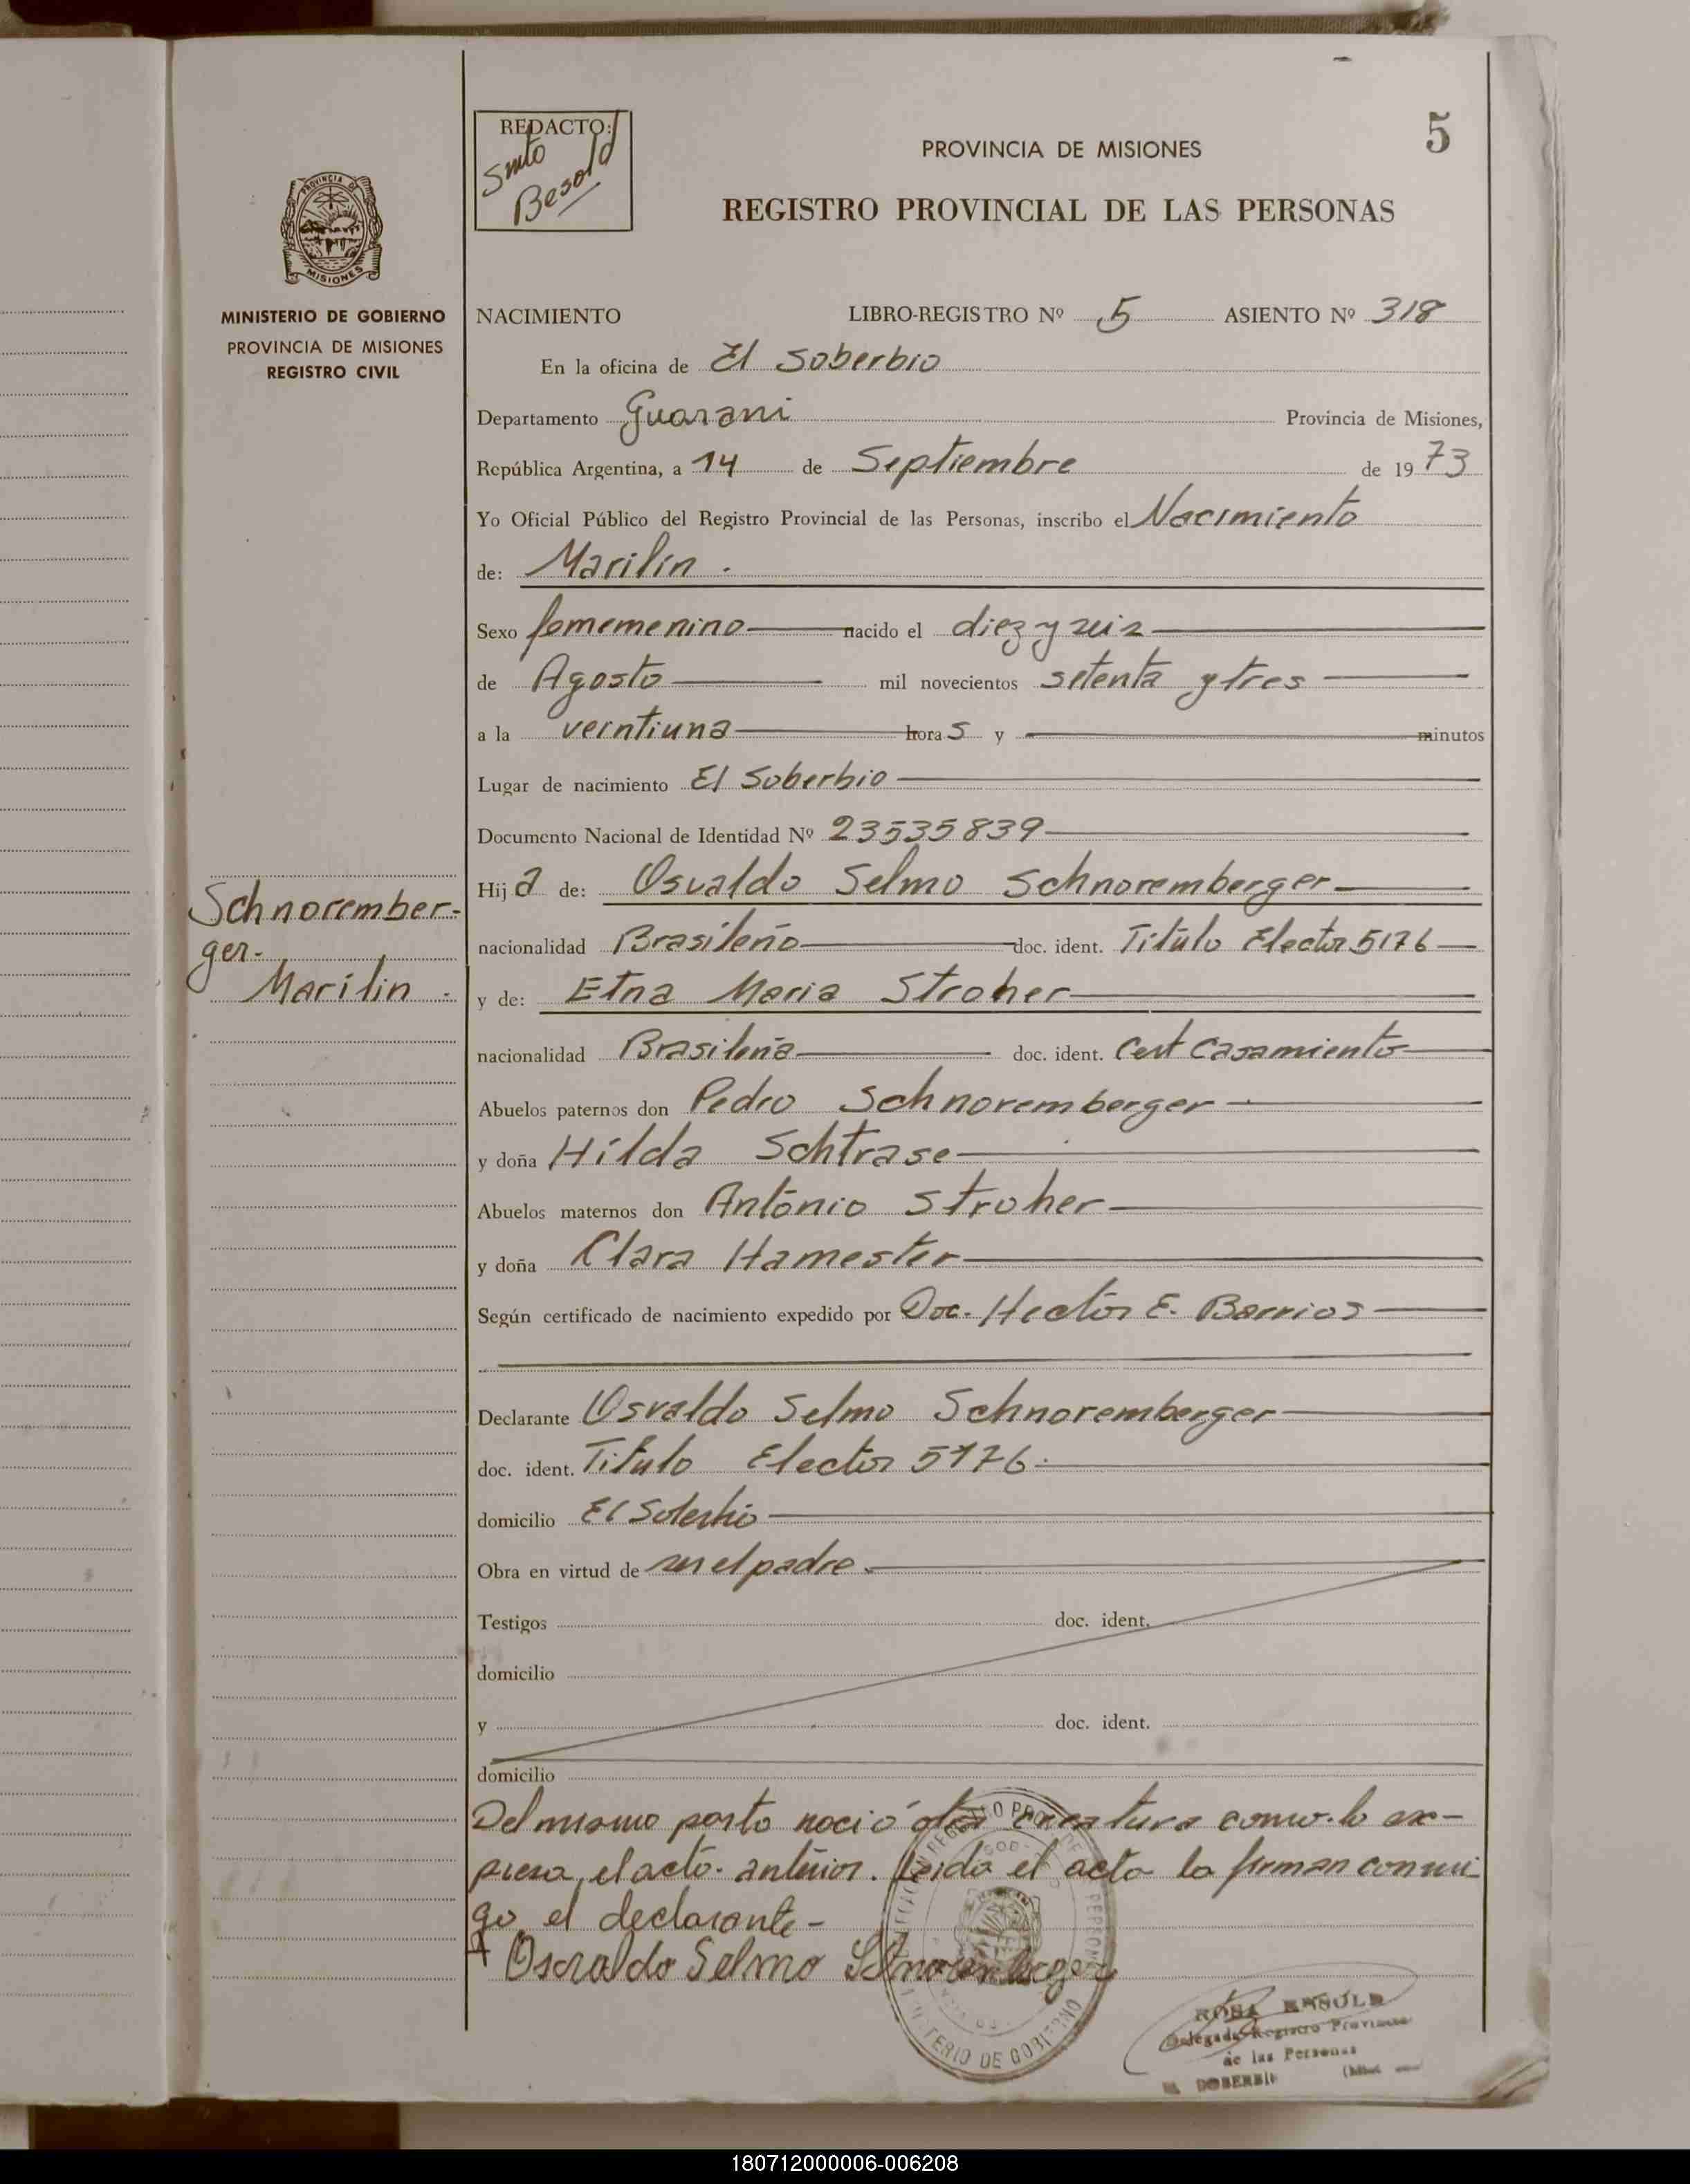 REDACTO:
Besold
5
PROVINCIA DE MISIONES
REGISTRO PROVINCIAL DE LAS PERSONAS
PROVINCIA DE
MISIONES
MINISTERIO DE GOBIERNO
PROVINCIA DE MISIONES
REGISTRO CIVIL
NACIMIENTO LIBRO-REGISTRO Nº 5 ASIENTO Nº 318
En la oficina de El Soberbio
Departamento Guarani Provincia de Misiones,
República Argentina, a 14 de Septiembre de 19 73
Yo Oficial Público del Registro Provincial de las Personas, inscribo el Nacimiento
de: Marilín.
Sexo fememenino nacido el diez y seis
de Agosto mil novecientos setenta y tres
a la veintiuna hora s y minutos
Lugar de nacimiento El Soberbio
Documento Nacional de Identidad Nº 23535839
Hij a de: Osvaldo Selmo Schnoremberger
Schnorember-
ger.
Marilin.
nacionalidad Brasileño doc. ident. Titulo Elector 5176
y de: Etna Maria Stroher
nacionalidad Brasileña doc. ident. Cert Casamiento
Abuelos paternos don Pedro Schnoremberger
y doña Hilda Schtrase
Abuelos maternos don António Stroher
y doña Clara Hamester
Según certificado de nacimiento expedido por Doc. Hectór E. Barrios
Declarante Osvaldo Selmo Schnoremberger
doc. ident. Titulo Elector 5176.
domicilio El Soberbio
Obra en virtud de ser el padre
Testigos doc. ident.
domicilio
y doc. ident.
domicilio
Del mismo parto nació otra creatura como lo ex-
presa, el acto anterior. Leida el acta la firman conmi-
go el declarante-
Osvaldo Selmo Schnoremberger
MINISTERIO DE GOBIERNO
ROSA BESOLD
Delegada Registro Provincial
de las Personas
EL SOBERBIO
180712000006-006208